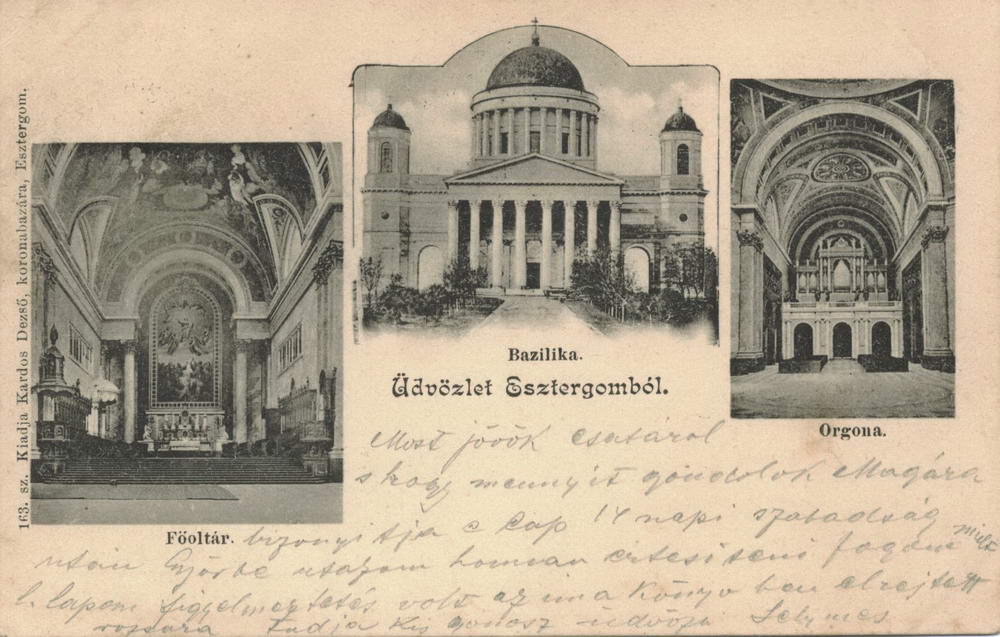 163. sz. Kiadja Kardos Dezső, koronabazára, Esztergom.
Bazilika.
Üdvözlet Esztergomból.
Orgona.
Főoltár.
Most jövök csatárol
s hogy mennyit gondolok Magára
bizonyitja e Lap 14 napi szabadság
után Győrbe utazom honnan ertesiteni fogom
b. lapom figgelmeztetés volt az ima Könyv ben elrejtett
Tudja Kis gonosz üdvözli